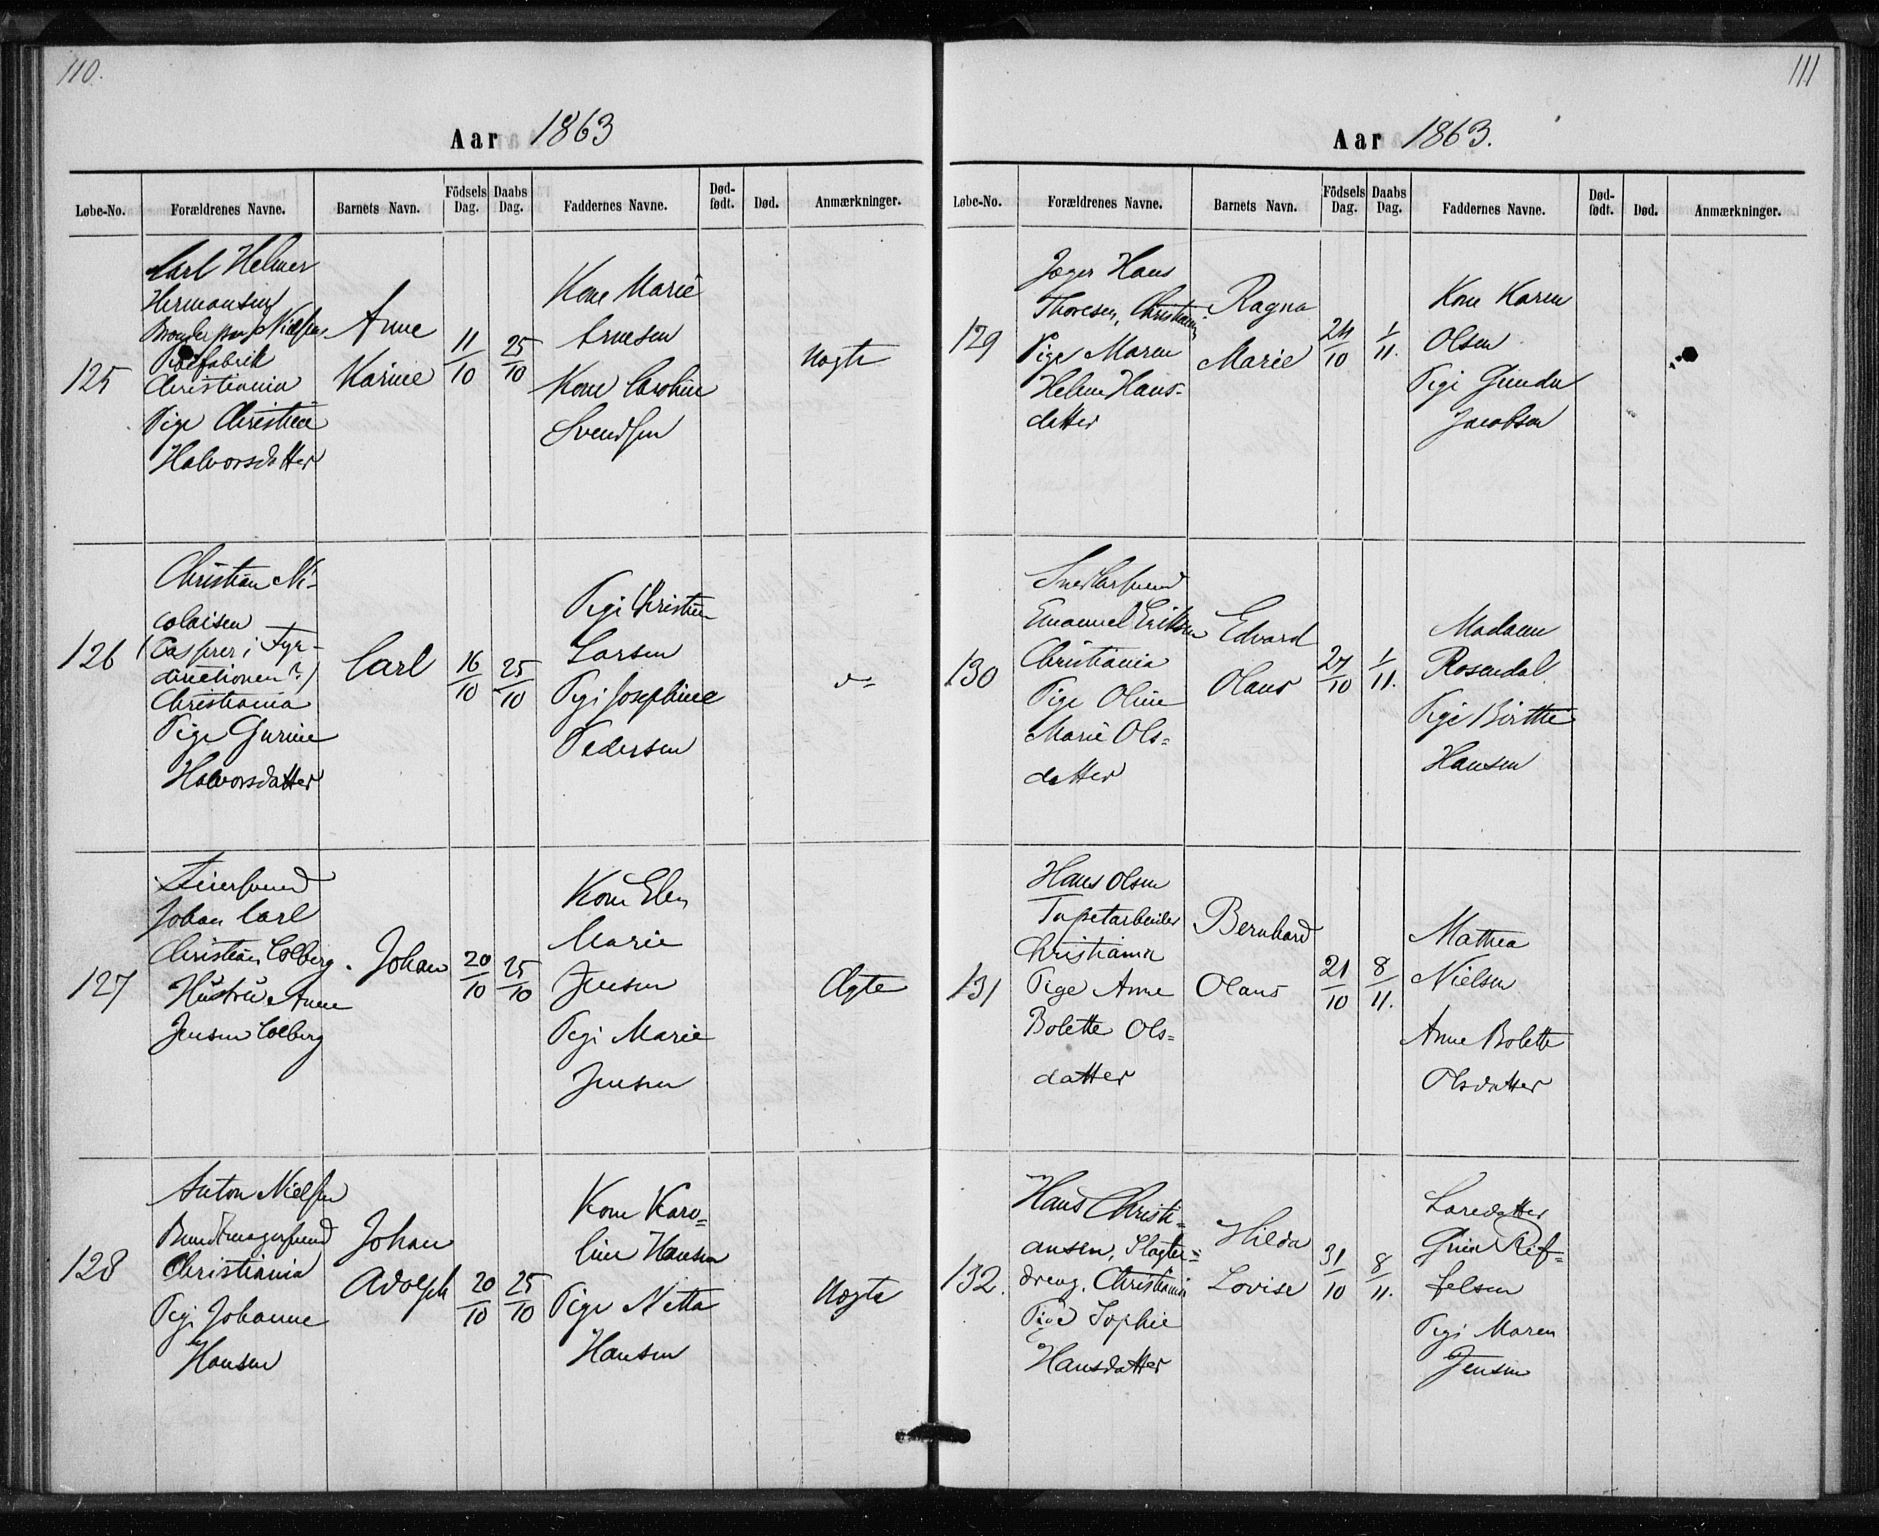 110.
Aar 1863
Løbe-No. Forældrenes Navne. Barnets Navn. Födsels Dag. Daabs Dag. Faddernes Navne. Død-født. Død. Anmærkninger.
125
Carl Helmer
Hermansen
Christiania
Pige Christine
Halvorsdatter
Anne
Karine
11/10
25/10
Kone Marie
Arnesen
Kone Caroline
Svendsen
Uægte
126
Christian Ni-
colaisen
Christiania
Pige Gurine
Halvorsdatter
Carl
16/10
25/10
Pige Christine
Larsen
Pige Josephine
Pedersen
127
Feiersvend
Johan Carl
Christian Colberg
Hustru Anne
Jensen Colberg
Johan
20/10
25/10
Kone Elen
Marie
Jensen
Pige Marie
Jensen
Ægte
128
Anton Nielsen
Bundtmagersvend
Christiania
Pige Johanne
Hansen
Johan
Adolph
20/10
25/10
Kone Karo-
line Hansen
Pige Netta
Hansen
Uægte
111
Aar 1863.
Løbe-No. Forældrenes Navne. Barnets Navn. Födsels Dag. Daabs Dag. Faddernes Navne. Død-født. Død. Anmærkninger.
129
Jæger Hans
Thoresen, Christiania
Pige Maren
Helene Hans-
datter
Ragna
Marie
24/10
1/11.
Kone Karen
Olsen
Pige Gunda
Jacobsen
130
Snedkersvend
Emanuel Eriksen
Christiania
Pige Oline
Marie Ols-
datter
Edvard
Olaus
27/10
1/11.
Madam
Rosendal
Pige Birthe
Hansen
131
Hans Olsen
Tapetarbeider
Christiania
Pige Anne
Bolette Ols-
datter
Bernhard
Olaus
21/10
8/11.
Mathea
Nielsen
Anne Bolette
Olsdatter
132.
Hans Christi-
ansen, Slagter-
dreng, Christiania
Pige Sophie
Hansdatter
Hilda
Lovise
31/10
8/11.
Pige Maren
Jensen